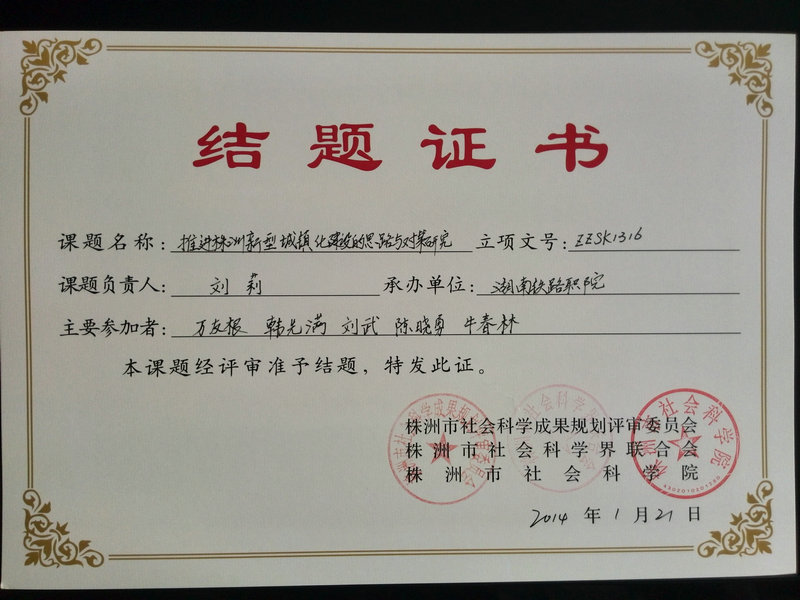 结题证书
课题名称：推进株洲新型城镇化建设的思路与对策研究 立项文号：ZZSK1316
课题负责人：刘莉 承办单位：湖南铁路职院
主要参加者：万友根 韩先满 刘武 陈晓勇 牛春林
本课题经评审准予结题，特发此证。
株洲市社会科学成果规划评审委员会
株洲市社会科学界联合会
株洲市社会科学院
2014年1月21日